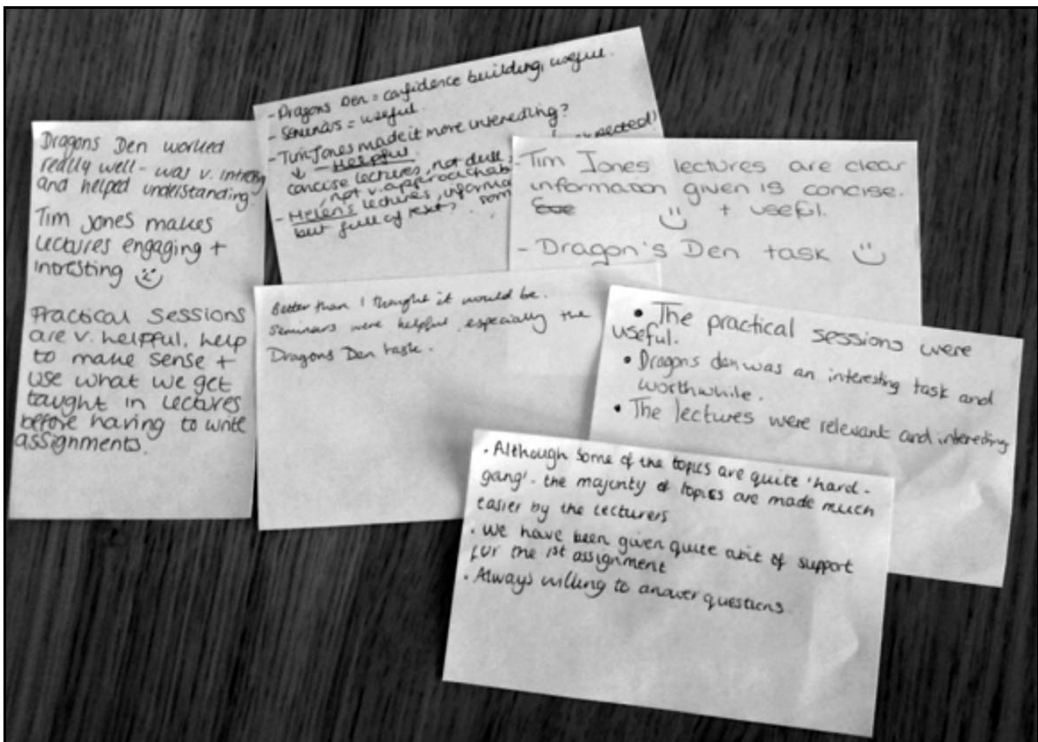 Dragons Den worked
really well - was v. intresting
and helped understanding.
Tim Jones makes
lectures engaging +
intresting
Practical sessions
are v. helpful, help
to make sense +
use what we get
taught in lectures
before having to write
assignments.
- Dragons Den = confidence building, useful.
- Seminars = useful.
- Tim Jones made it more interesting?
↓ - Helpful
concise lectures, not dull,
not v. approachab
- Helen's lectures, informa
but full of
- Tim Jones lectures are clear
information given is concise.
+ useful.
- Dragon's Den task
Better than I thought it would be.
Seminars were helpful, especially the
Dragons Den task.
• The practical sessions were
useful.
• Dragons den was an interesting task and
worthwhile.
• The lectures were relevant and interesting
• Although some of the topics are quite 'hard-
going' - the majority of topics are made much
easier by the lecturers
• We have been given quite abit of support
for the 1st assignment
• Always willing to answer questions.